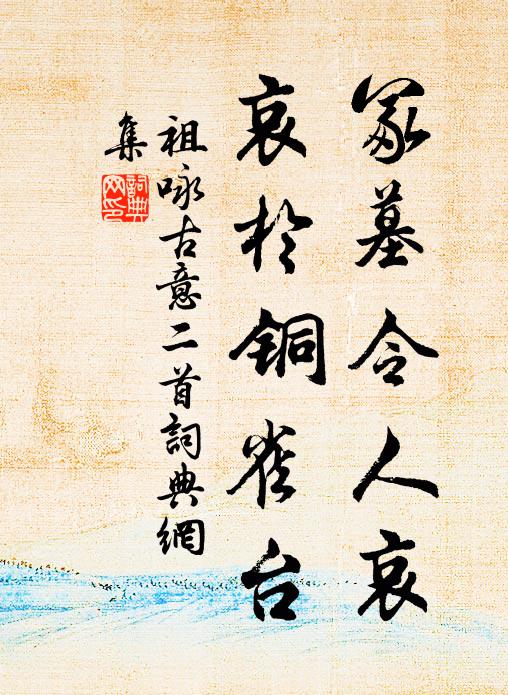 冢墓令人哀
哀於铜雀台
祖咏古意二首詞典網
集
詞典
网印